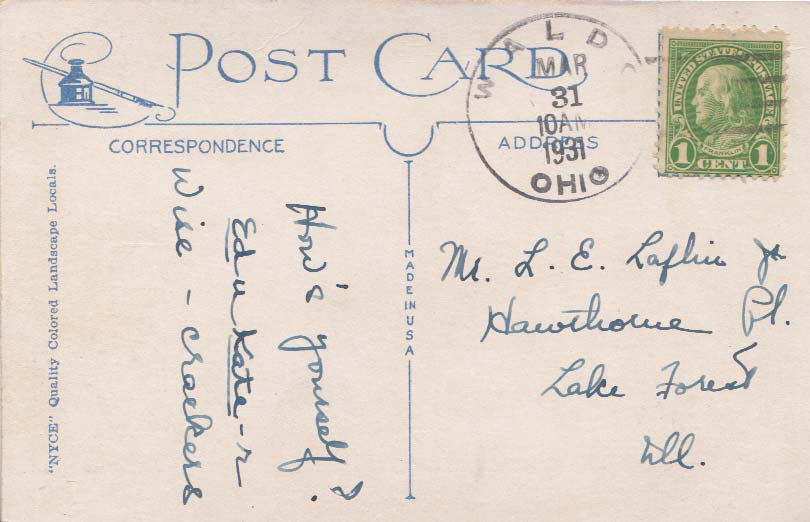 POST CARD
WALDO
MAR
31
10 AM
1931
OHIO
UNITED STATES POSTAGE
FRANKLIN
1 CENT 1
CORRESPONDENCE
ADDRESS
"NYCE" Quality Colored Landscape Locals.
MADE IN USA
How's yourself?
Edu Kate-r
Wise-crackers
Mr. L. E. Laflin Jr
Hawthorne Pl.
Lake Forest
Ill.